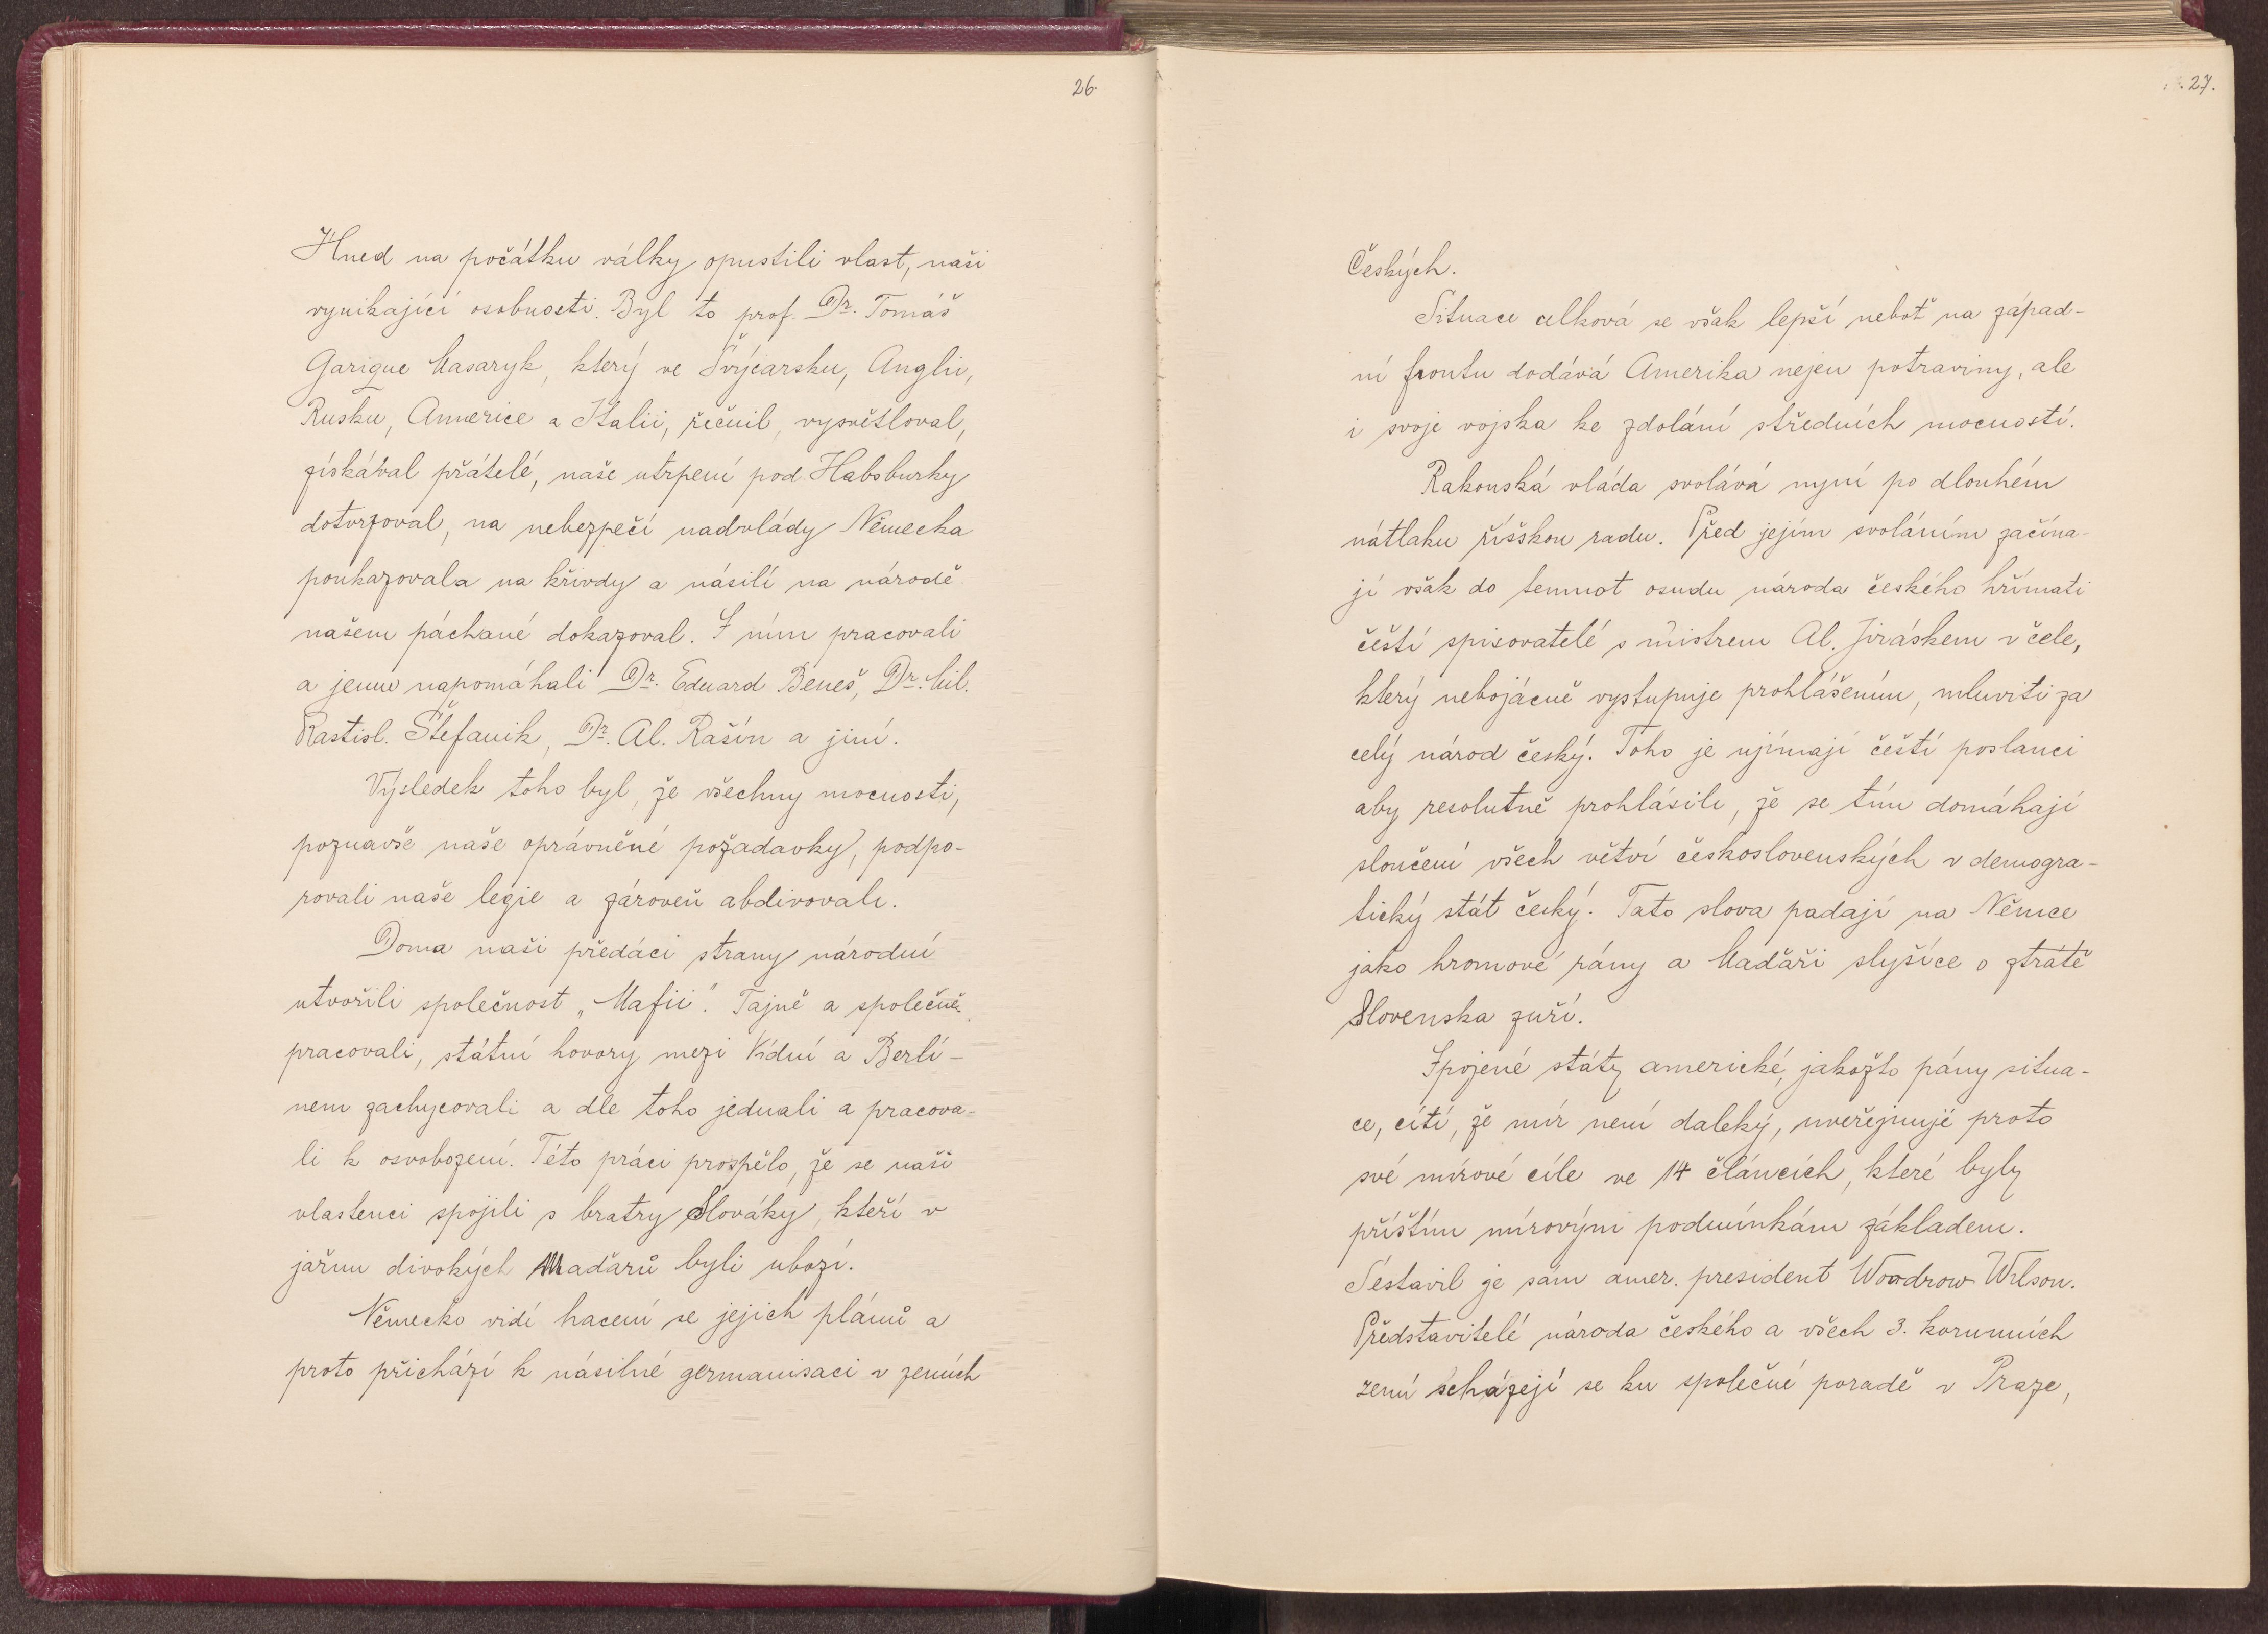 26.
Hned na počátku války opustili vlast, naši
vynikající osobnosti. Byl to prof. Dr. Tomáš
Garigue Masaryk, který ve Švýcarsku, Anglii,
Rusku, Americe a Italii, řečnil, vysvětloval,
získával přátelé, naše utrpení pod Habsburky
dotvrzoval, na nebezpečí nadvlády Německa
poukazovala na křivdy a násilí na národě
našem páchané dokazoval. S ním pracovali
a jemu napomáhali Dr. Eduard Beneš, Dr. Mil.
Rastisl. Štefanik, Dr. Al. Rašín a jiní.
Výsledek toho byl, že všechny mocnosti,
poznavše naše oprávněné požadavky, podpo-
rovali naše legie a zároveň abdivovali.
Doma naši předáci strany národní
utvořili společnost „Mafii". Tajně a společně
pracovali, státní hovory mezi Vídní a Berlí-
nem zachycovali a dle toho jednali a pracova-
li k osvobození. Této práci prospělo, že se naši
vlastenci spojili s bratry Slováky, kteří v
jařmu divokých Maďarů byli ubozí.
Německo vidí hacení se jejich plánů a
proto přichází k násilné germanisaci v zemích
27.
Českých.
Situace celková se však lepší neboť na západ-
ní frontu dodává Amerika nejen potraviny, ale
i svoje vojska ke zdolání středních mocností.
Rakouská vláda svolává nyní po dlouhém
nátlaku říšskou radu. Před jejím svoláním začína-
jí však do temnot osudu národa českého hřímati
čeští spisovatelé s mistrem Al. Jiráskem v čele,
který nebojácně vystupuje prohlášením, mluviti za
celý národ český. Toho je ujímají čeští poslanci
aby resolutně prohlásili, že se tím domáhají
sloučení všech větví československých v demogra-
tický stát český. Tato slova padají na Němce
jako hromové rány a Maďaři slyšíce o ztrátě
Slovenska zuří.
Spojené státy americké, jakožto pány situa-
ce, cítí, že mír není daleký, uveřejnuje proto
své mírové cíle ve 14 článcích, které byly
příštím mírovým podmínkám základem.
Sestavil je sám amer. president Woodrow Wilson.
Představitelé národa českého a všech 3. korunních
zemí scházejí se ku společné poradě v Praze,